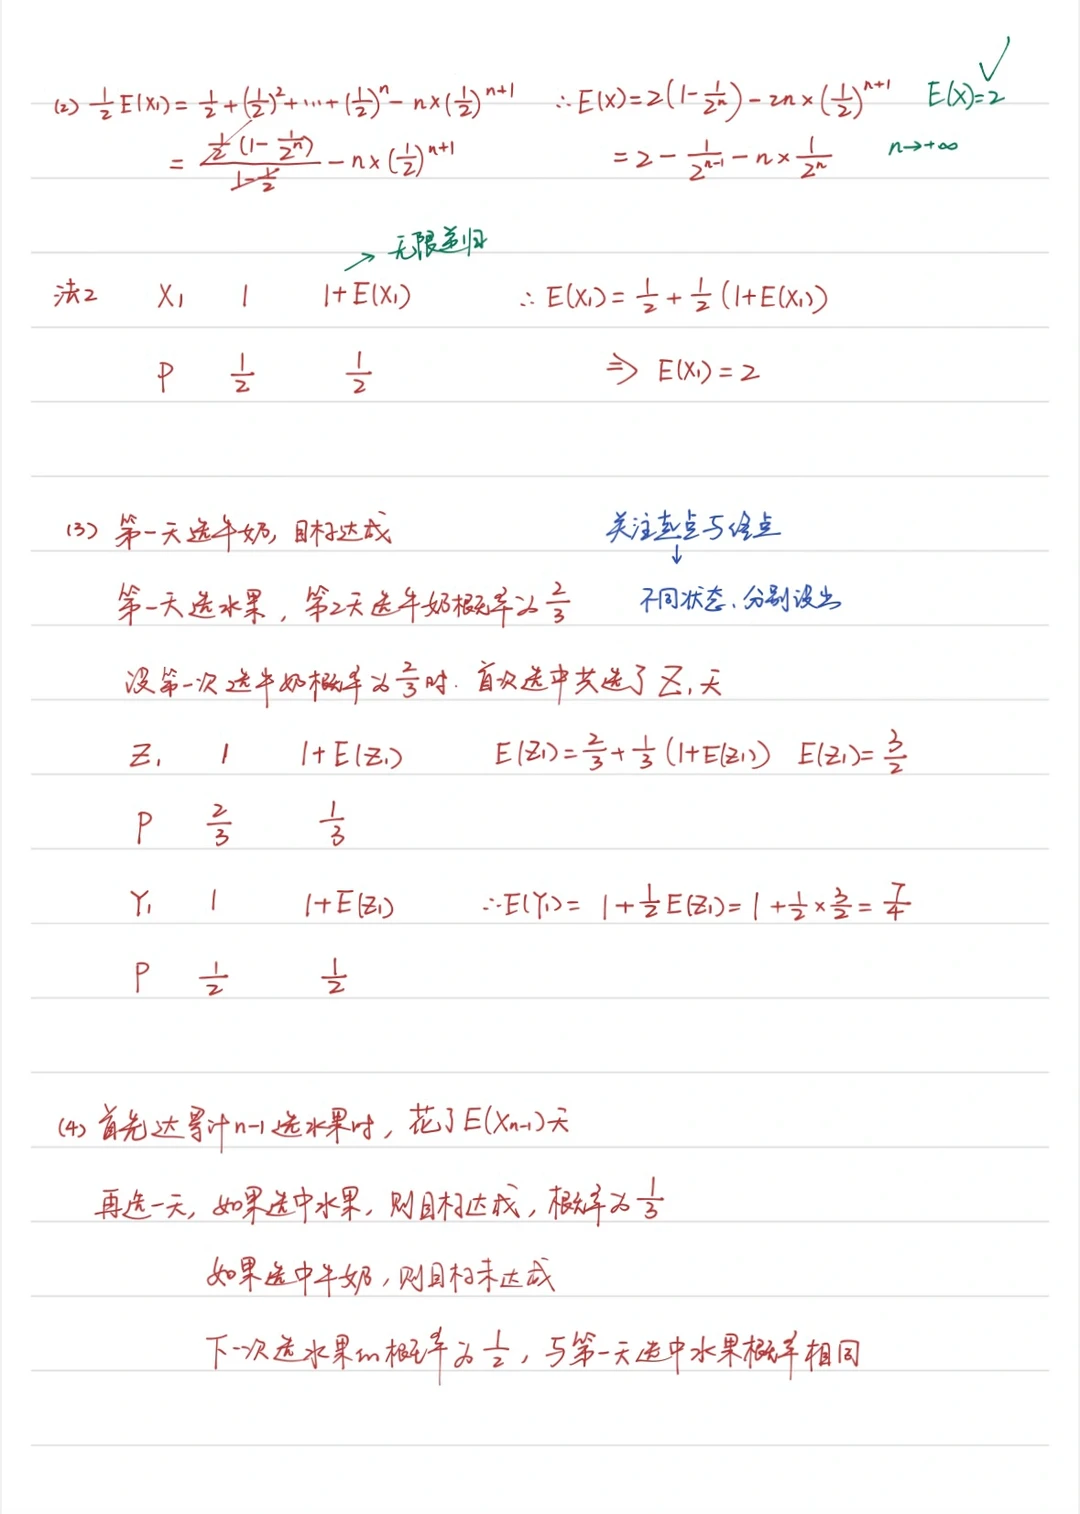 (2) ½E(X₁) = ½ + (½)² + ··· + (½)ⁿ − n×(½)ⁿ⁺¹ ∴E(X) = 2(1 − 1/2ⁿ) − 2n×(½)ⁿ⁺¹ E(X)=2 ✓
= ½(1 − 1/2ⁿ)/(1−½) − n×(½)ⁿ⁺¹ = 2 − 1/2ⁿ⁻¹ − n×1/2ⁿ n→+∞
→ 无限递归
法2 X₁ 1 1+E(X₁) ∴ E(X₁) = ½ + ½(1+E(X₁))
P ½ ½ ⇒ E(X₁) = 2
(3) 第一天选牛奶, 目标达成 关注起点与终点
↓
第一天选水果, 第2天选牛奶概率为 2/3 不同状态、分别设出
设第一次选牛奶概率为 2/3 时. 首次选中共选了 Z₁天
Z₁ 1 1+E(Z₁) E(Z₁) = 2/3 + 1/3(1+E(Z₁)) E(Z₁) = 3/2
P 2/3 1/3
Y₁ 1 1+E(Z₁) ∴E(Y₁) = 1+½E(Z₁) = 1+½×3/2 = 7/4
P ½ ½
(4) 首先达累计n-1选水果时, 花了E(Xn-1)天
再选一天, 如果选中水果, 则目标达成, 概率为 1/3
如果选中牛奶, 则目标未达成
下一次选水果的概率为 ½, 与第一天选中水果概率相同